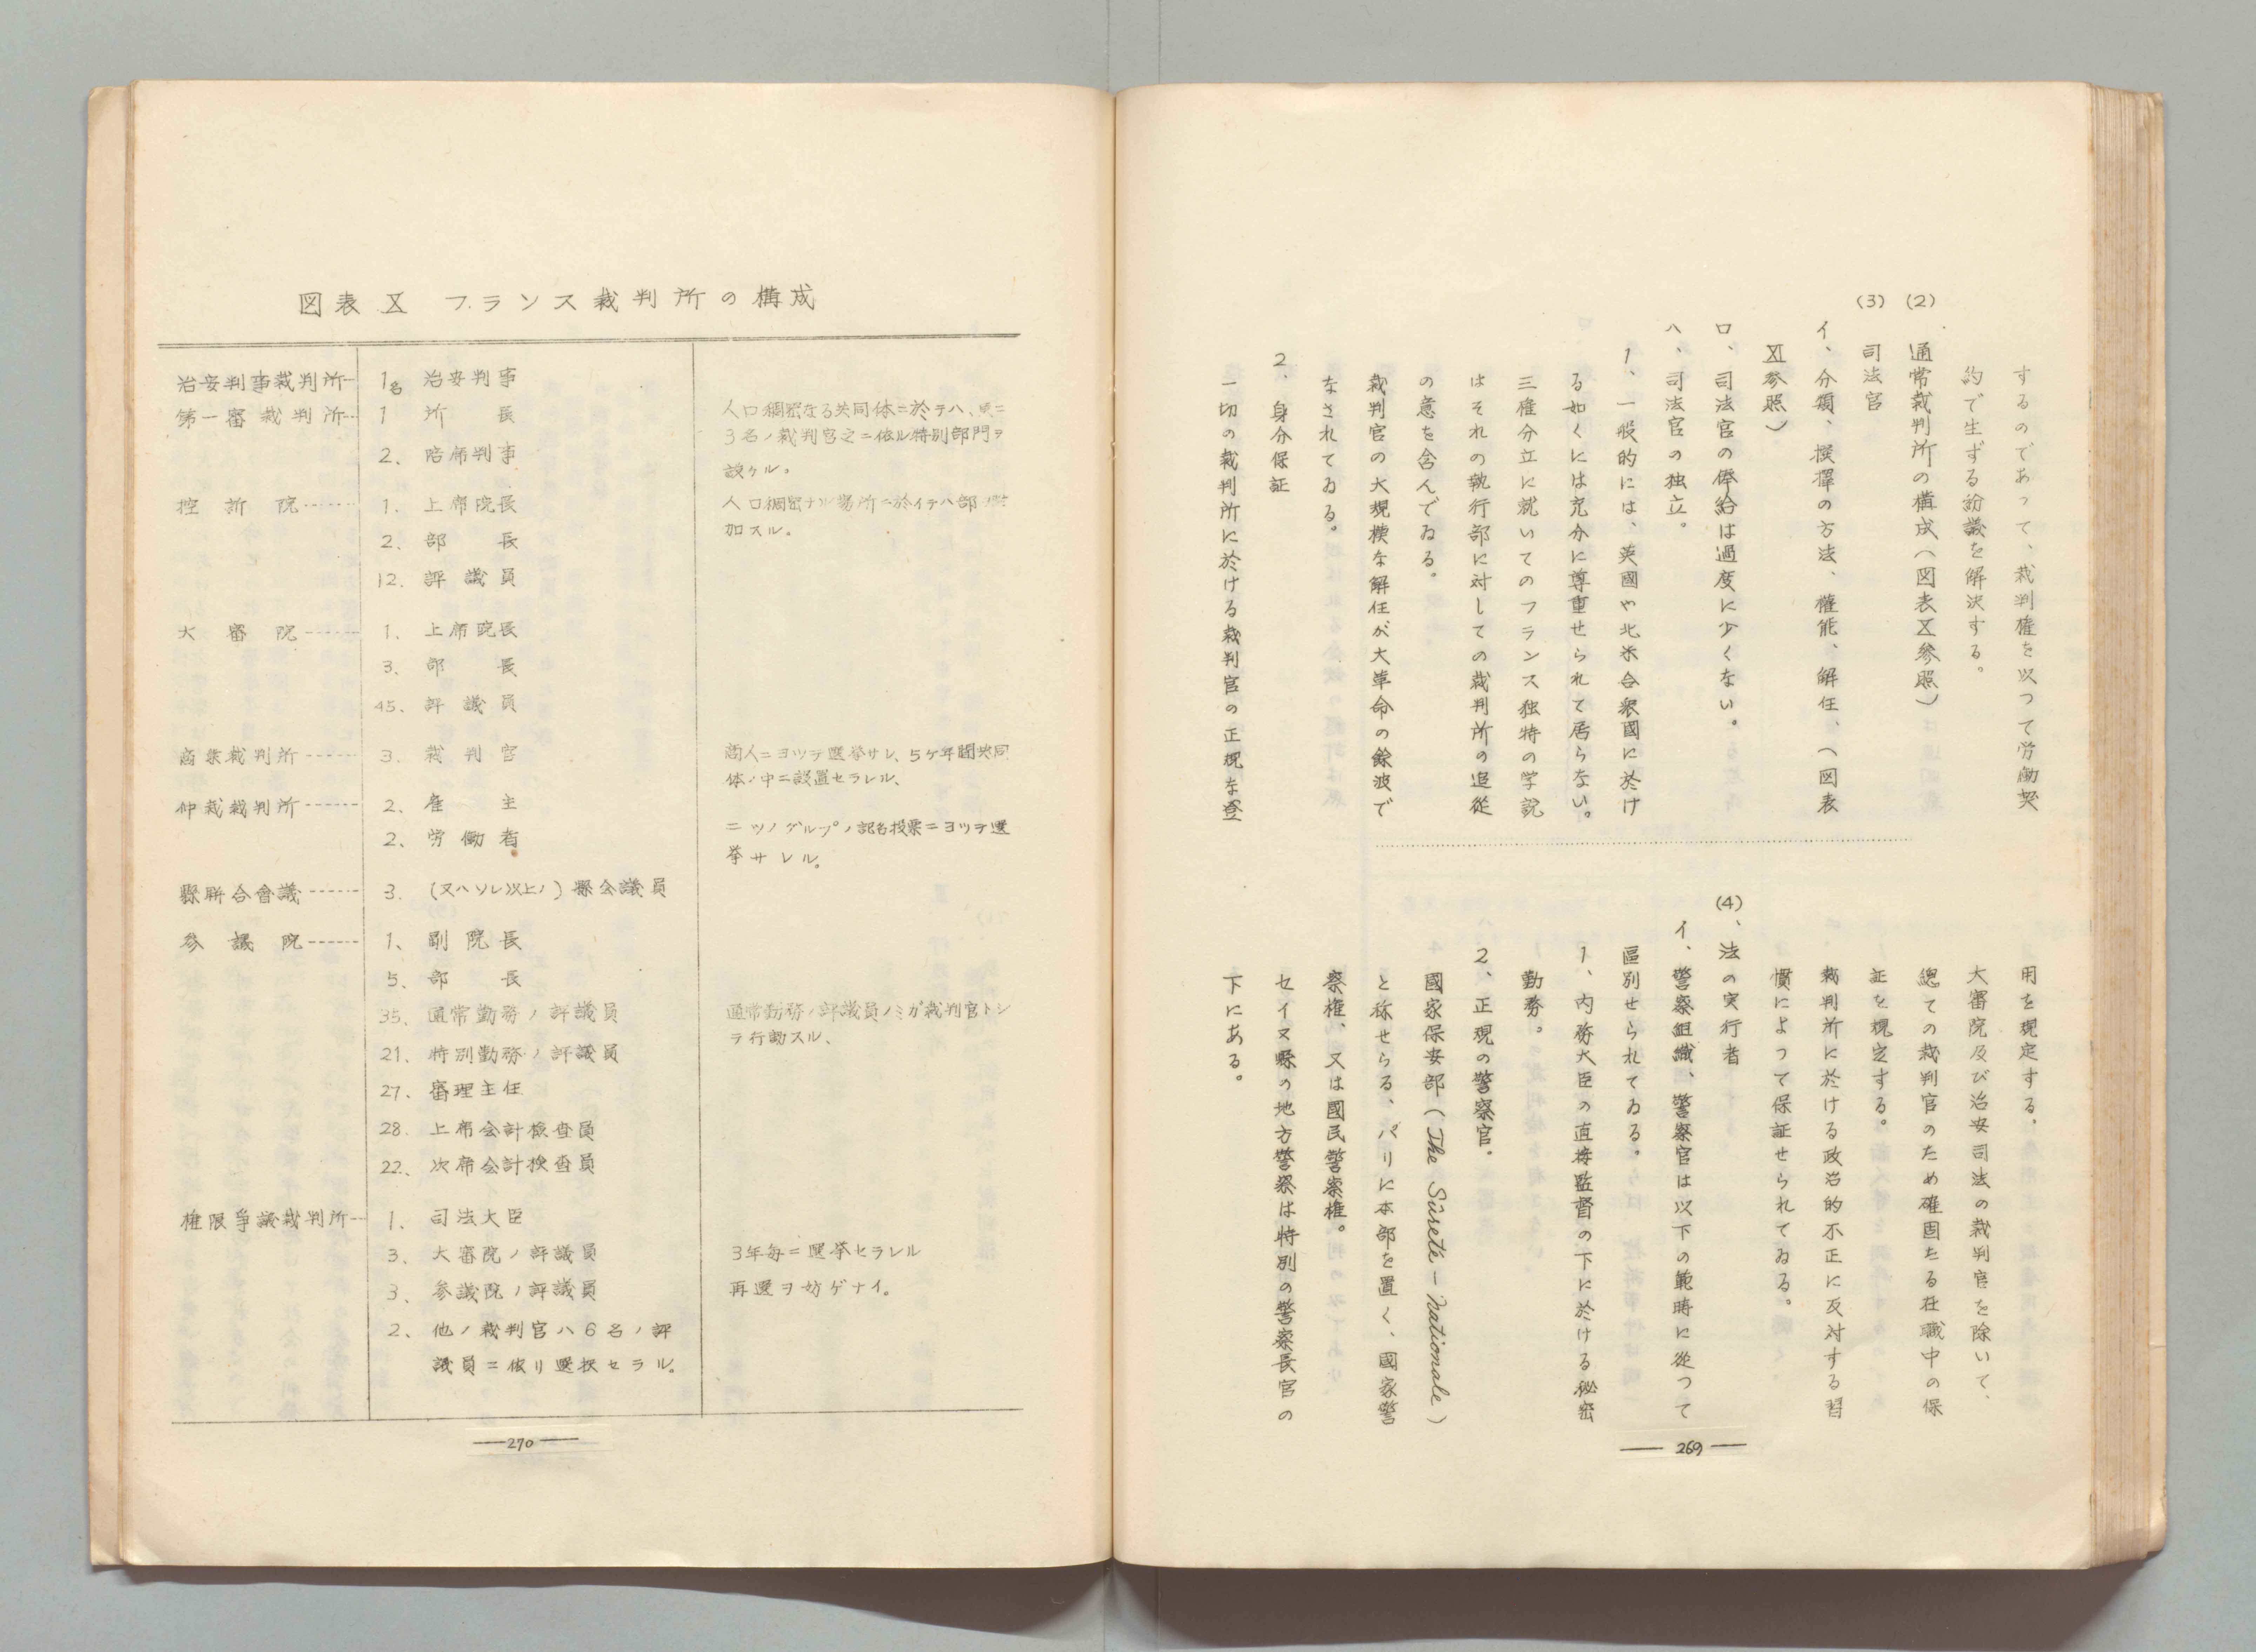 するのであって、裁判権を以つて労働契
約で生ずる紛議を解決する。
(2) 通常裁判所の構成(図表Ⅹ参照)
(3) 司法官
イ、分類、撰擇の方法、権能、解任、(図表
Ⅺ参照)
ロ、司法官の俸給は過度に少くない。
ハ、司法官の独立。
1、一般的には、英國や北米合衆國に於け
る如くには充分に尊重せられて居らない。
三権分立に就いてのフランス独特の学説
はそれの執行部に対しての裁判所の追従
の意を含んでゐる。
裁判官の大規模な解任が大革命の餘波で
なされてゐる。
2、身分保証
一切の裁判所に於ける裁判官の正規な登
用を規定する、
大審院及び治安司法の裁判官を除いて、
總ての裁判官のため確固たる在職中の保
証を規定する。
裁判所に於ける政治的不正に反対する習
慣によつて保証せられてゐる。
(4)、法の実行者
イ、警察組織、警察官は以下の範時に從つて
區別せられてゐる。
1、内務大臣の直接監督の下に於ける秘密
勤務。
2、正規の警察官。
國家保安部(The Sûreté-Nationale)
と称せらる、パリに本部を置く、國家警
察権、又は國民警察権。
セイヌ縣の地方警察は特別の警察長官の
下にある。
—269—
図表 Ⅹ フランス裁判所の構成
治安判事裁判所 1名 治安判事
第一審裁判所 1 所長
人口稠密なる共同体ニ於テハ、更ニ
3名ノ裁判官之ニ依ル特別部門ヲ
設ケル。
2、陪席判事
控訴院 1. 上席院長
人口稠密ナル場所ニ於イテハ部ヲ附
加スル。
2. 部長
12. 評議員
大審院 1. 上席院長
3、部長
45、評議員
商業裁判所 3. 裁判官
商人ニヨツテ選挙サレ、5ケ年間共同
体ノ中ニ設置セラレル、
仲裁裁判所 2. 雇主
2、労働者
二ツノグループノ記名投票ニヨツテ選
挙サレル。
縣聯合會議 3. (又ハソレ以上ノ)縣会議員
参議院 1、副院長
5、部長
35、通常勤務ノ評議員
通常勤務ノ評議員ノミガ裁判官トシ
テ行動スル、
21、特別勤務ノ評議員
27、審理主任
28. 上席会計検査員
22、次席会計検査員
権限爭議裁判所 1、司法大臣
3、大審院ノ評議員
3年毎ニ選挙セラレル
3、参議院ノ評議員
再選ヲ妨ゲナイ。
2、他ノ裁判官ハ6名ノ評
議員ニ依リ選択セラル。
—270—